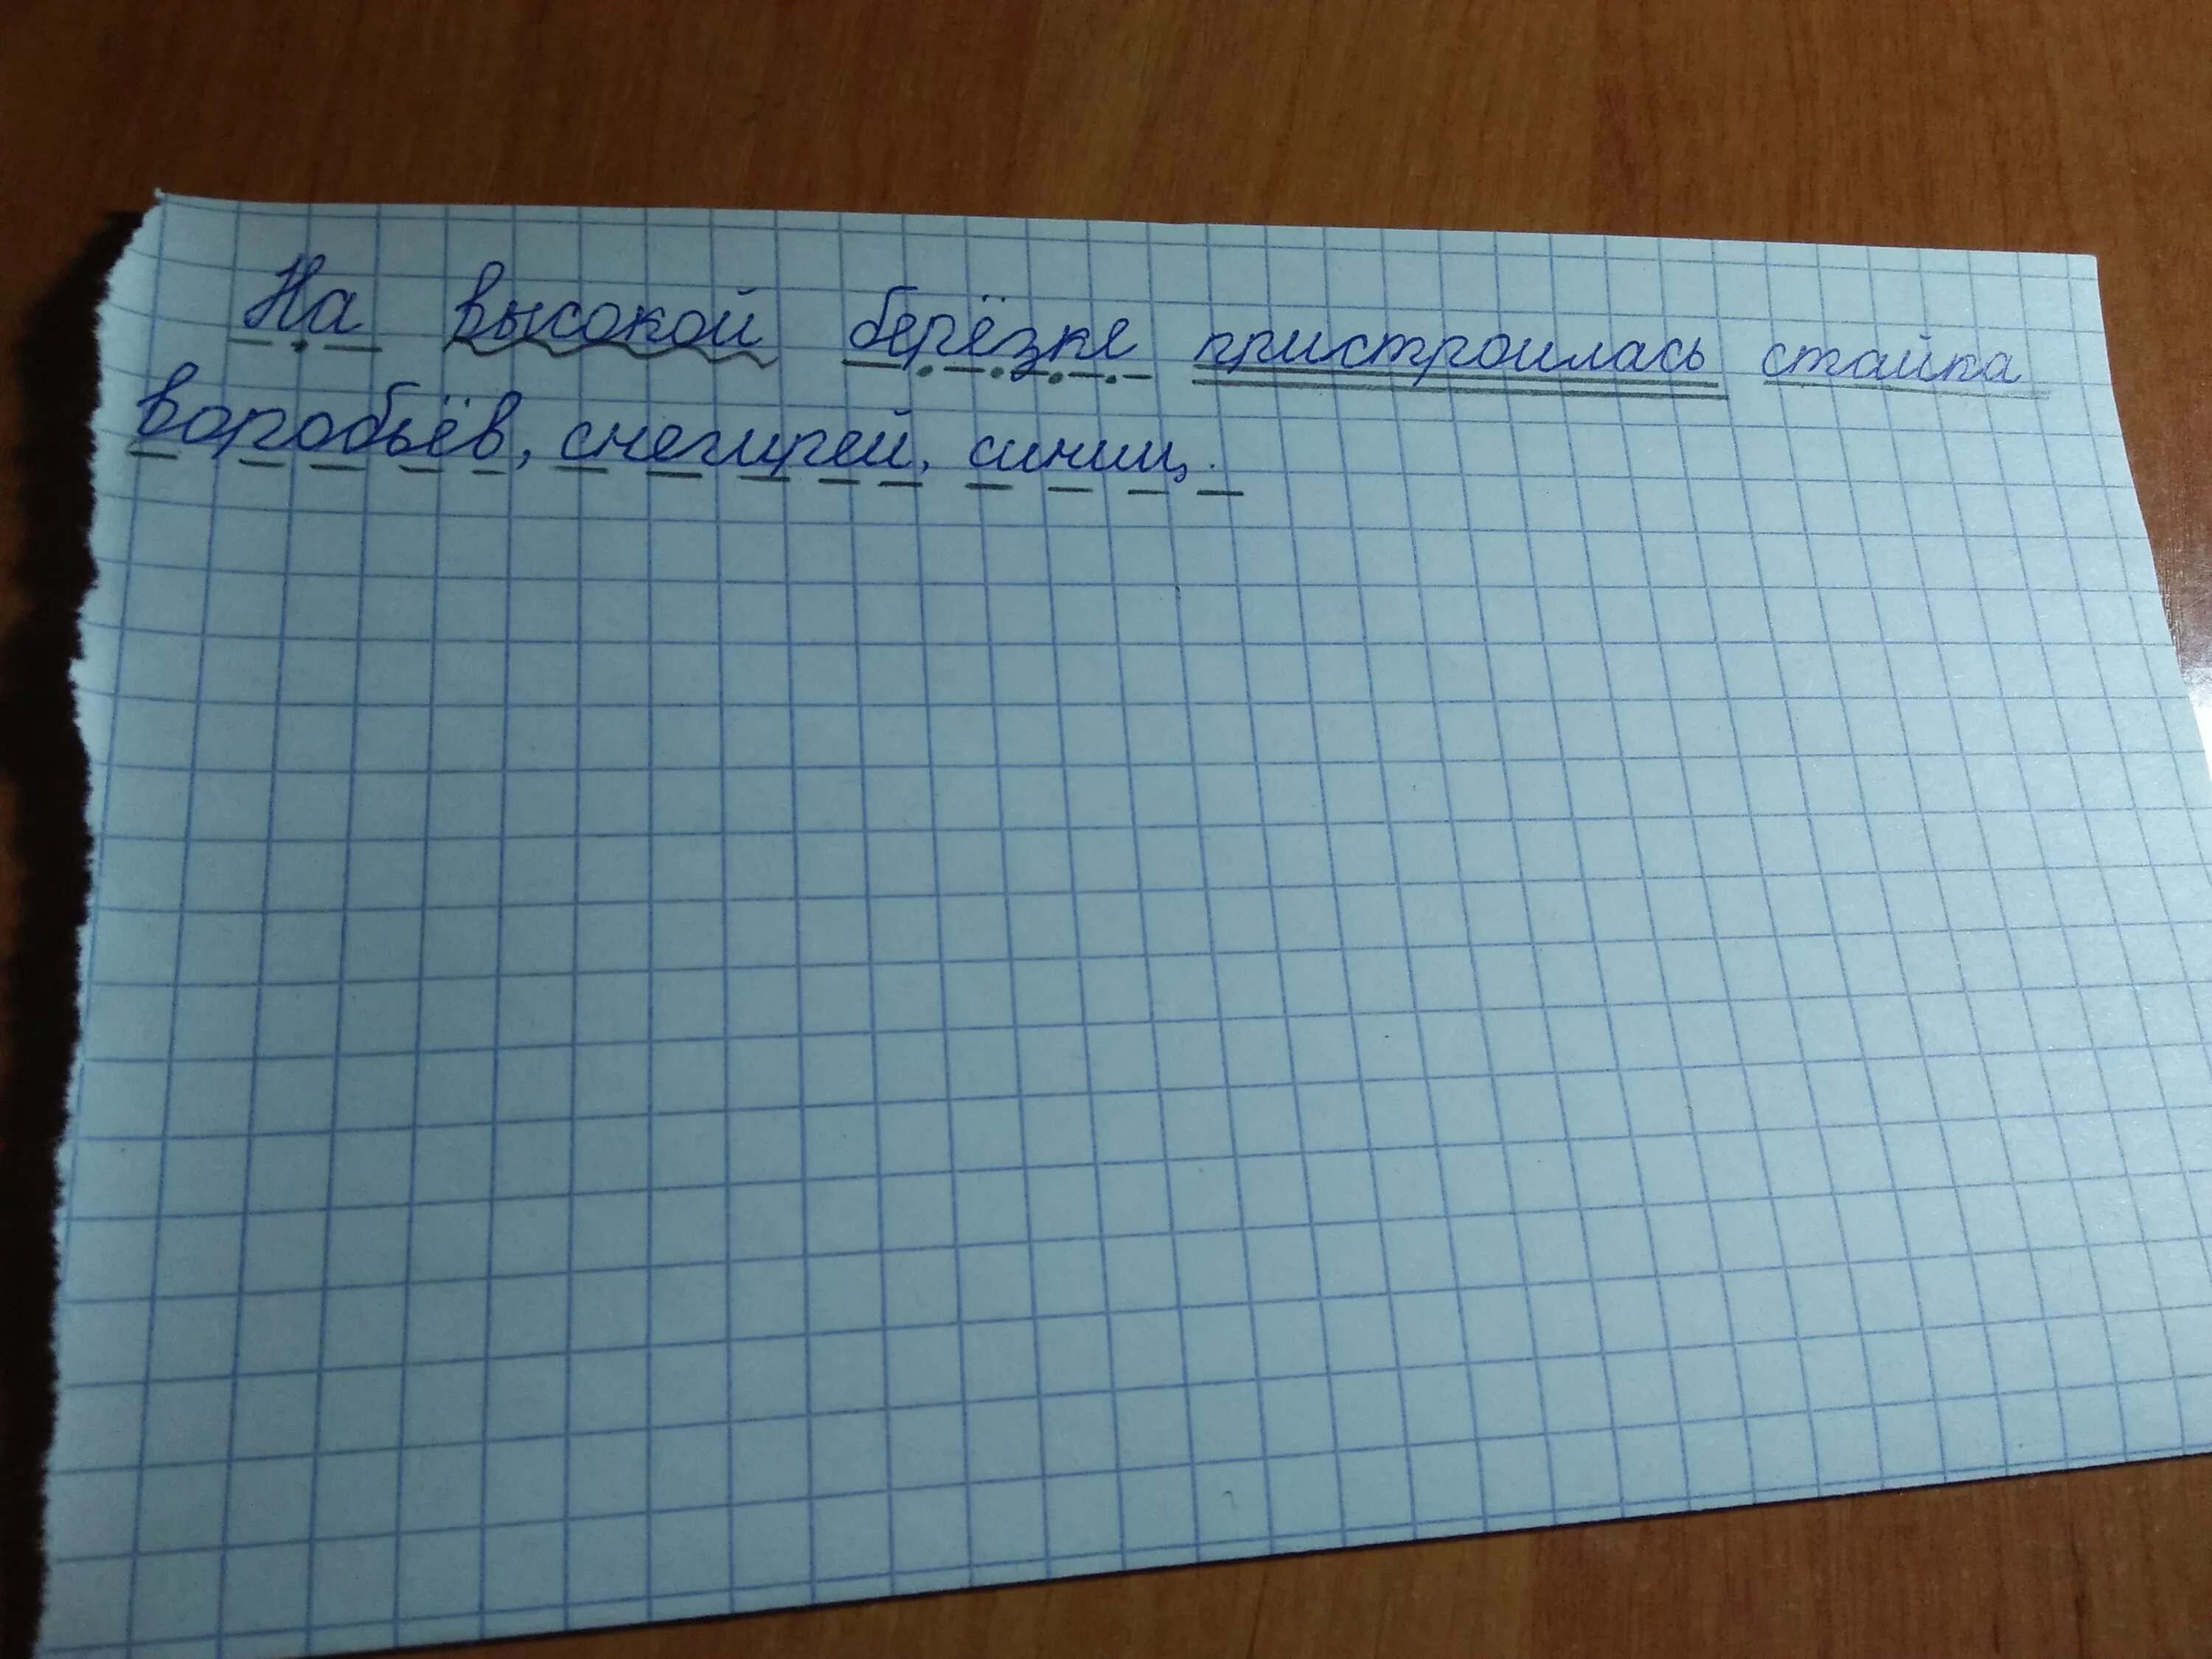 На высокой берёзке пристроилась стайка
воробьёв, снегирей, синиц.